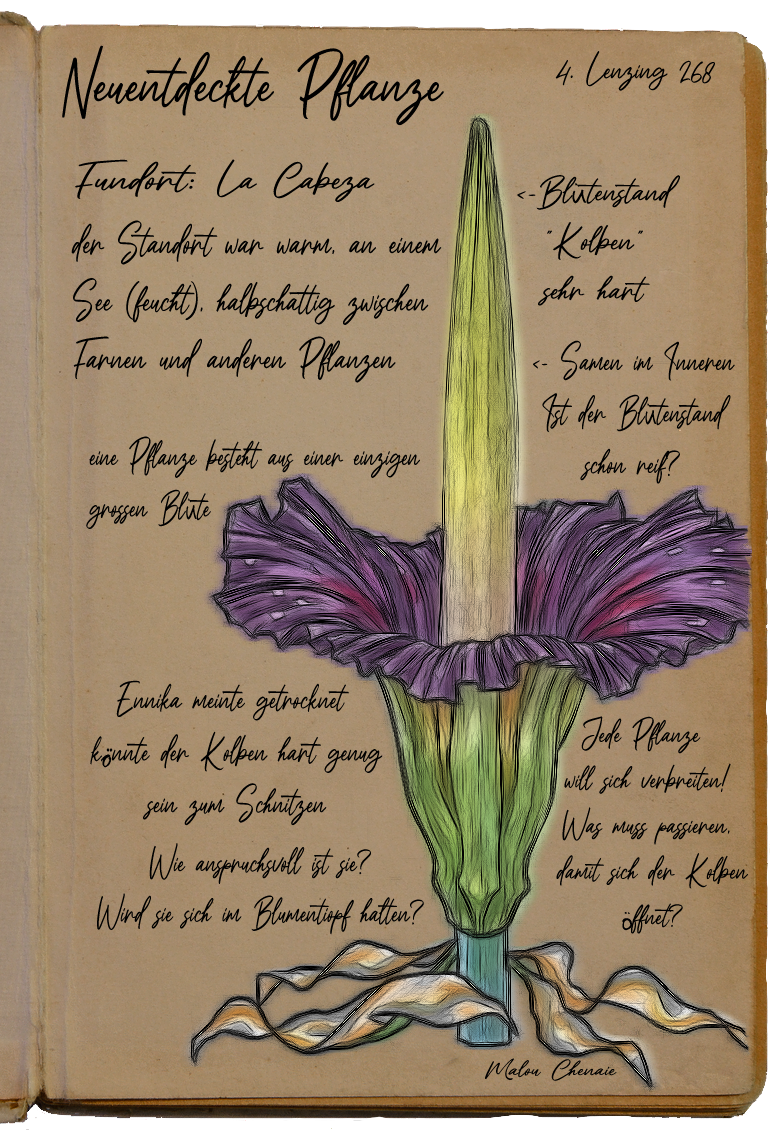 Neuentdeckte Pflanze
4. Lenzing 268
Fundort: La Cabeza
der Standort war warm, an einem
See (feucht), halbschattig zwischen
Farnen und anderen Pflanzen
<- Blütenstand
"Kolben"
sehr hart
<- Samen im Inneren
Ist der Blütenstand
schon reif?
eine Pflanze besteht aus einer einzigen
grossen Blüte
Ennika meinte getrocknet
könnte der Kolben hart genug
sein zum Schnitzen
Wie anspruchsvoll ist sie?
Wird sie sich im Blumentiopf halten?
Jede Pflanze
will sich verbreiten!
Was muss passieren,
damit sich der Kolben
öffnet?
Malou Chenaie